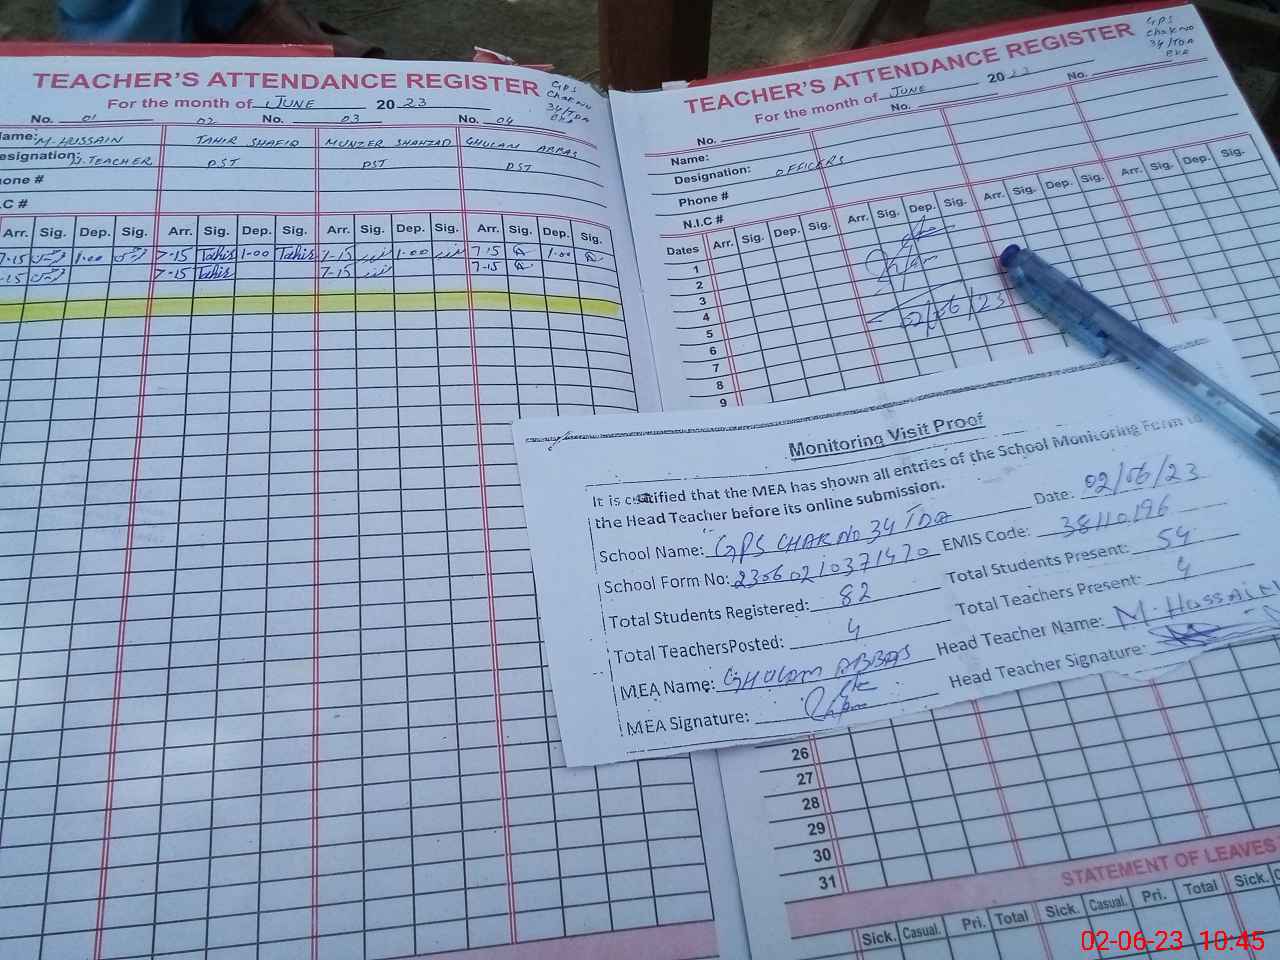 TEACHER'S ATTENDANCE REGISTER
GPS
CHAK NO
34/TDA
BKR
For the month of JUNE 2023
No. 01 02 No. 03 No. 04
Name: M. HUSSAIN TAHIR SHAFIQ MUNZER SHAHZAD GHULAM ABBAS
Designation: TEACHER PST PST PST
Phone #
N.I.C #
Arr. Sig. Dep. Sig. Arr. Sig. Dep. Sig. Arr. Sig. Dep. Sig. Arr. Sig. Dep. Sig.
7-15 1-00 7-15 Tahir 1-00 Tahir 7-15 1-00 7-15 1-00
7-15 7-15 Tahir 7-15 7-15
TEACHER'S ATTENDANCE REGISTER
GPS
CHAK NO
34/TDA
BKR
For the month of JUNE 2023
No. No. No.
Name:
Designation: OFFICERS
Phone #
N.I.C #
Dates Arr. Sig. Dep. Sig. Arr. Sig. Dep. Sig. Arr. Sig. Dep. Sig. Arr. Sig. Dep. Sig.
1
2
3
4
5
6
7
8
9
02/06/23
Monitoring Visit Proof
It is certified that the MEA has shown all entries of the School Monitoring Form to
the Head Teacher before its online submission.
Date: 02/06/23
School Name: GPS CHAK NO 34 TDA
EMIS Code: 38110196
School Form No: 23060210371470
Total Students Present: 54
Total Students Registered: 82
Total Teachers Present: 4
Total TeachersPosted: 4
Head Teacher Name: M. HUSSAIN
MEA Name: GHULAM ABBAS
Head Teacher Signature:
MEA Signature:
26
27
28
29
30
31
STATEMENT OF LEAVES
Sick. Casual. Pri. Total Sick. Casual. Pri. Total Sick.
02-06-23 10:45